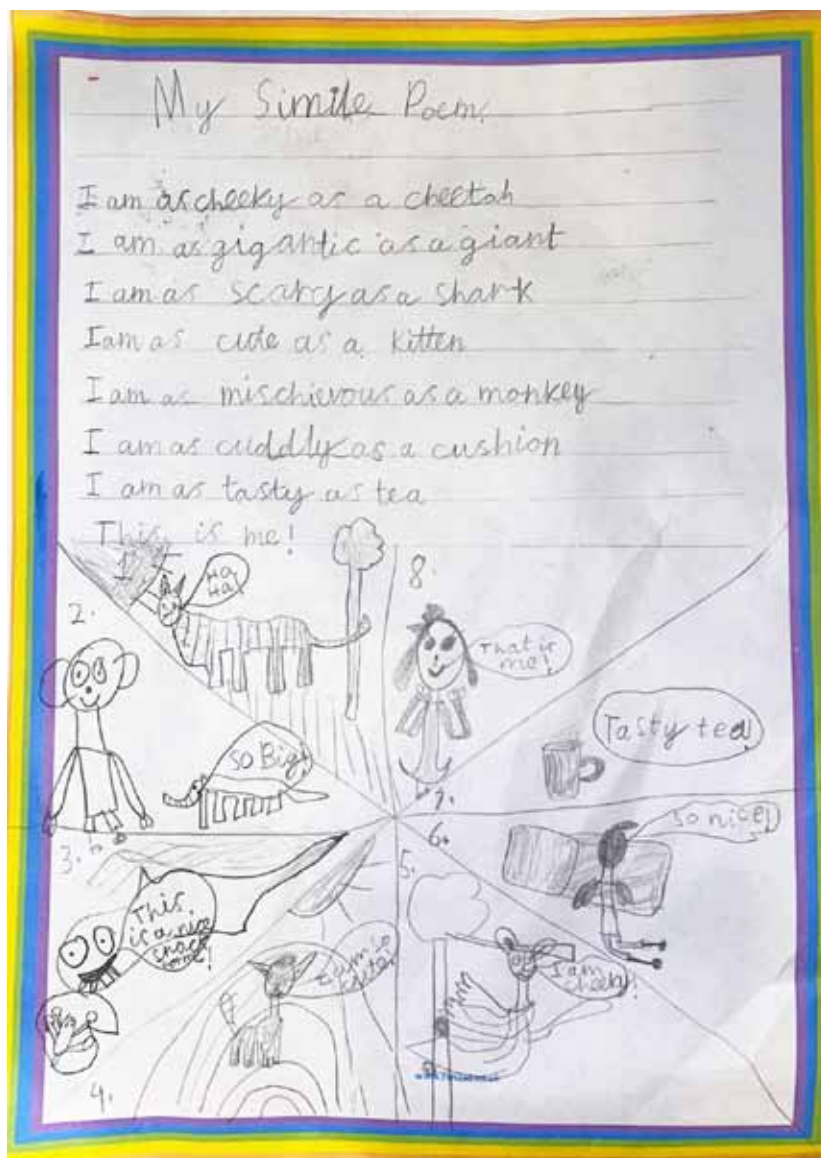 My Simile Poem.
I am as cheeky as a cheetah
I am as gigantic as a giant
I am as scary as a shark
I am as cute as a kitten
I am as mischievous as a monkey
I am as cuddly as a cushion
I am as tasty as tea
This is me!
1.
Ha
Ha!
2.
So Big!
3.
This
is a nice
snack
4.
I am so
cute!
5.
I am
cheeky!
6.
So nice!
7.
Tasty tea!
8.
That is
me!